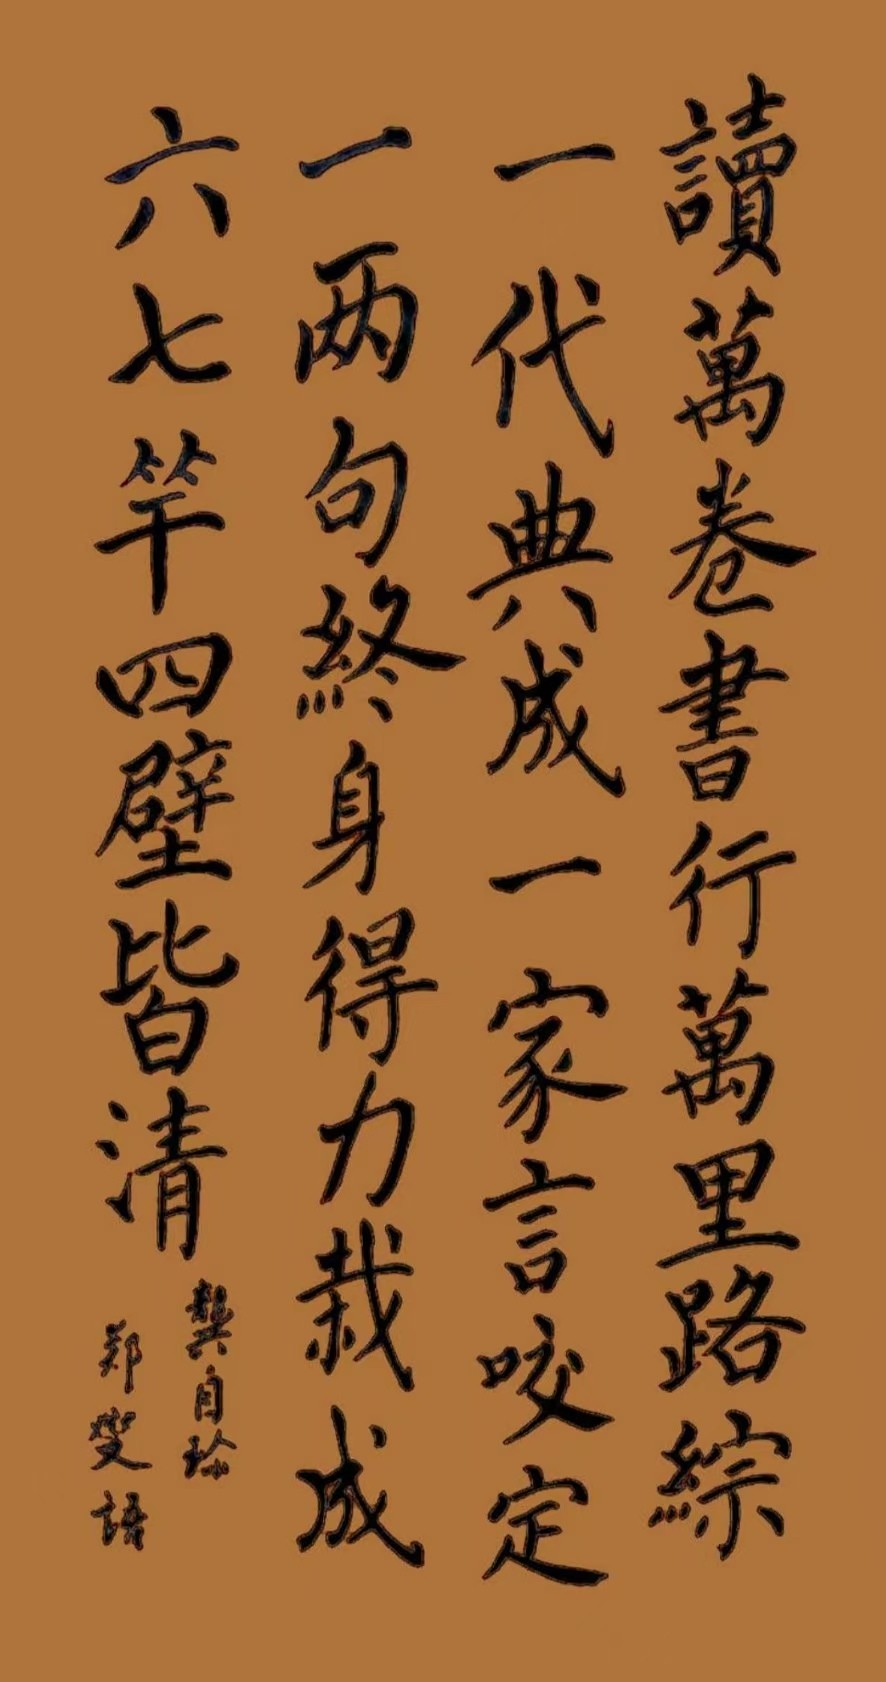 讀萬卷書行萬里路綜
一代典成一家言咬定
一两句終身得力栽成
六七竿四壁皆清
龔自珍
郑燮語